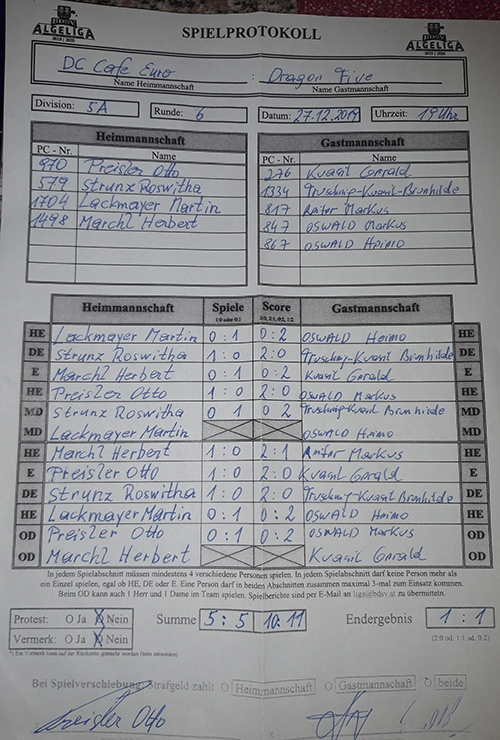 BDSV ALGELIGA 2019 | 2020
SPIELPROTOKOLL
BDSV ALGELIGA 2019 | 2020
DC Cafe Euro : Dragon Five
Name Heimmannschaft Name Gastmannschaft
Division: 5A Runde: 6 Datum: 27.12.2019 Uhrzeit: 19 Uhr
Heimmannschaft Gastmannschaft
PC - Nr. Name PC - Nr. Name
970 Preisler Otto 276 Kvasil Gerald
579 Strunz Roswitha 1334 Truschnig-Kvasil-Brunhilde
1704 Lackmayer Martin 817 Reiter Markus
1498 Marchl Herbert 847 OSWALD Markus
867 OSWALD Heimo
Heimmannschaft Spiele Score Gastmannschaft
1:0 oder 0:1 2:0, 2:1, 0:2, 1:2
HE Lackmayer Martin 0:1 0:2 OSWALD Heimo HE
DE Strunz Roswitha 1:0 2:0 Truschnig-Kvasil Brunhilde DE
E Marchl Herbert 0:1 0:2 Kvasil Gerald E
HE Preisler Otto 1:0 2:0 OSWALD Markus HE
MD Strunz Roswitha 0 1 0 2 Truschnig-Kvasil Brunhilde MD
MD Lackmayer Martin OSWALD Heimo MD
HE Marchl Herbert 1:0 2:1 Reiter Markus HE
E Preisler Otto 1:0 2:0 Kvasil Gerald E
DE Strunz Roswitha 1:0 2:0 Truschnig-Kvasil Brunhilde DE
HE Lackmayer Martin 0:1 0:2 OSWALD Heimo HE
OD Preisler Otto 0:1 0:2 OSWALD Markus OD
OD Marchl Herbert Kvasil Gerald OD
In jedem Spielabschnitt müssen mindestens 4 verschiedene Personen spielen. In jedem Spielabschnitt darf keine Person mehr als
ein Einzel spielen, egal ob HE, DE oder E. Eine Person darf in beiden Abschnitten zusammen maximal 3-mal zum Einsatz kommen.
Beim OD kann auch 1 Herr und 1 Dame im Team spielen. Spielberichte sind per E-Mail an liga@bdsv.at zu übermitteln.
Protest: O Ja X Nein Summe 5:5 10:11 Endergebnis 1:1
Vermerk: O Ja X Nein (2:0 od. 1:1 od. 0:2)
*) Ein Vermerk kann auf der Rückseite gemacht werden (bitte mitsenden)
Bei Spielverschiebung: Strafgeld zahlt O Heimmannschaft O Gastmannschaft O beide
Preisler Otto